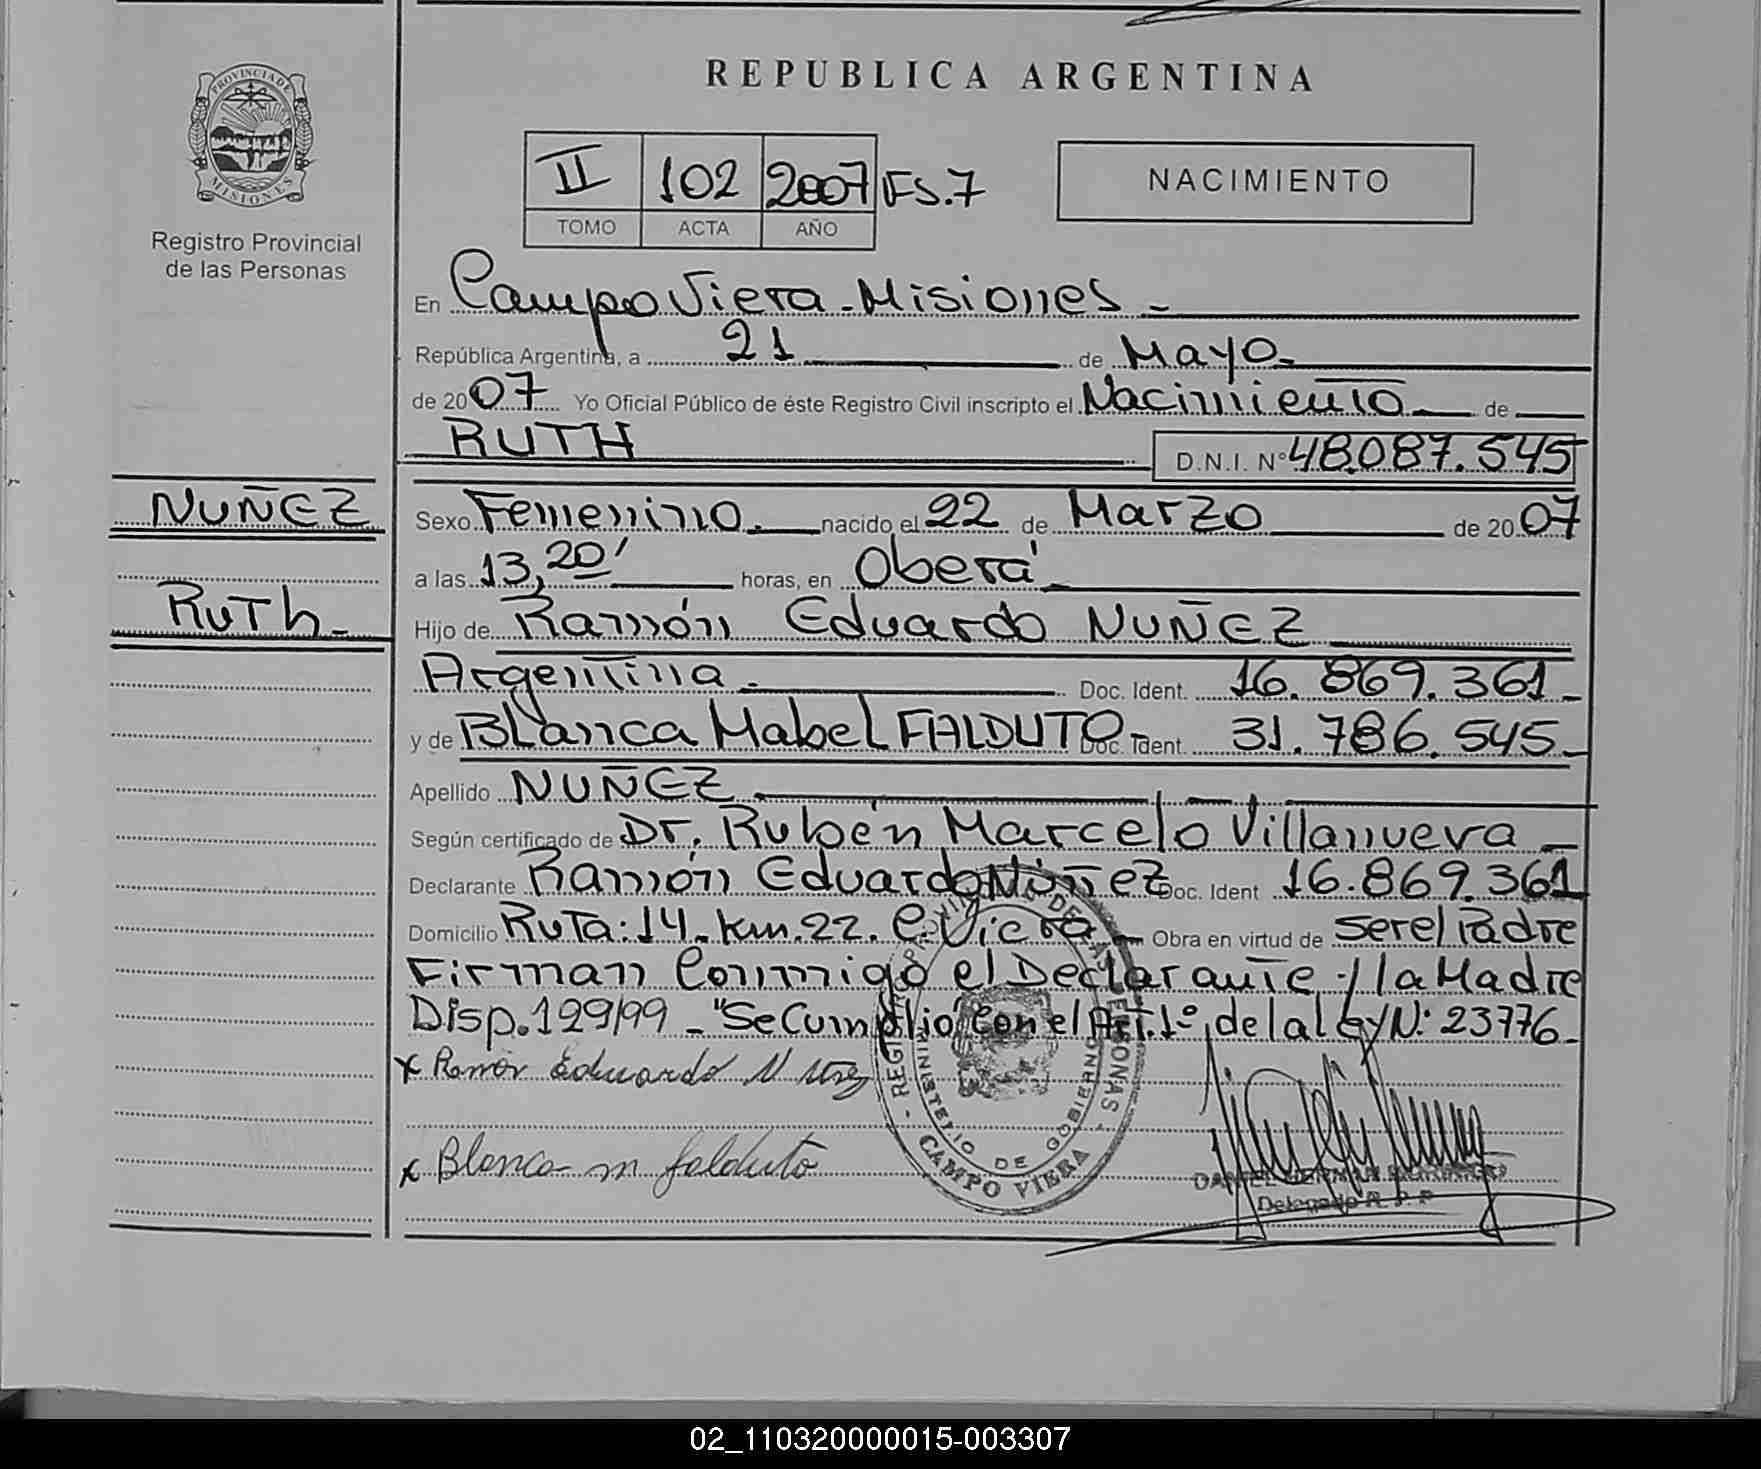 REPUBLICA ARGENTINA
PROVINCIA DE MISIONES
Registro Provincial
de las Personas
II 102 2007 FS.7
TOMO ACTA AÑO
NACIMIENTO
En Campo Viera - Misiones -
República Argentina, a 21 de Mayo -
de 2007 Yo Oficial Público de éste Registro Civil inscripto el Nacimiento de
RUTH D.N.I. Nº 48.087.545
NUÑEZ
Ruth -
Sexo Femenino. nacido el 22 de Marzo de 2007
a las 13,20' horas, en Oberá -
Hijo de Ramón Eduardo NUÑEZ
Argentina - Doc. Ident. 16.869.361 -
y de Blanca Mabel FALDUTO - Doc. Ident. 31.786.545 -
Apellido NUÑEZ
Según certificado de Dr. Rubén Marcelo Villanueva -
Declarante Ramón Eduardo Núñez Doc. Ident 16.869.361
Domicilio Ruta: 14 - km. 22. C. Viera - Obra en virtud de ser el Padre
Firman Conmigo el Declarante y la Madre
Disp. 129/99 - "Se Cumplio con el Art. 1º de la Ley N: 23776 -
x Ramón Eduardo Nuñez
x Blanca m falduto
MINISTERIO DE GOBIERNO
CAMPO VIERA
Delegado R. P. P
02_110320000015-003307